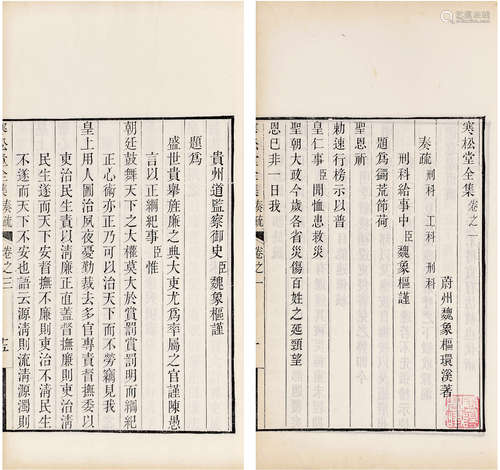 寒松堂全集卷之一
蔚州魏象樞環溪著
奏疏 刑科 工科 刑科
刑科給事中臣魏象樞謹
題爲蠲荒節荷
聖恩祈
勅速行榜示以普
皇仁事臣聞恤患救災
聖朝大政今歲各省災傷百姓之延頸望
恩已非一日我
寒松堂全集 奏疏 卷之一 一
貴州道監察御史臣魏象樞謹
題爲
盛世貴舉旌廉之典大吏尤爲率屬之官謹陳愚
言以正綱紀事臣惟
朝廷鼓舞天下之大權莫大於賞罰賞罰明而綱紀
正心術亦正乃可以治天下而不勞竊見我
皇上用人圖治夙夜憂勤裁去多官專責督撫委以
吏治民生責以清廉正直蓋督撫廉則吏治清
民生遂而天下安督撫不廉則吏治不清民生
不遂而天下不安也語云源清則流清源濁則
寒松堂全集 奏疏 卷之三